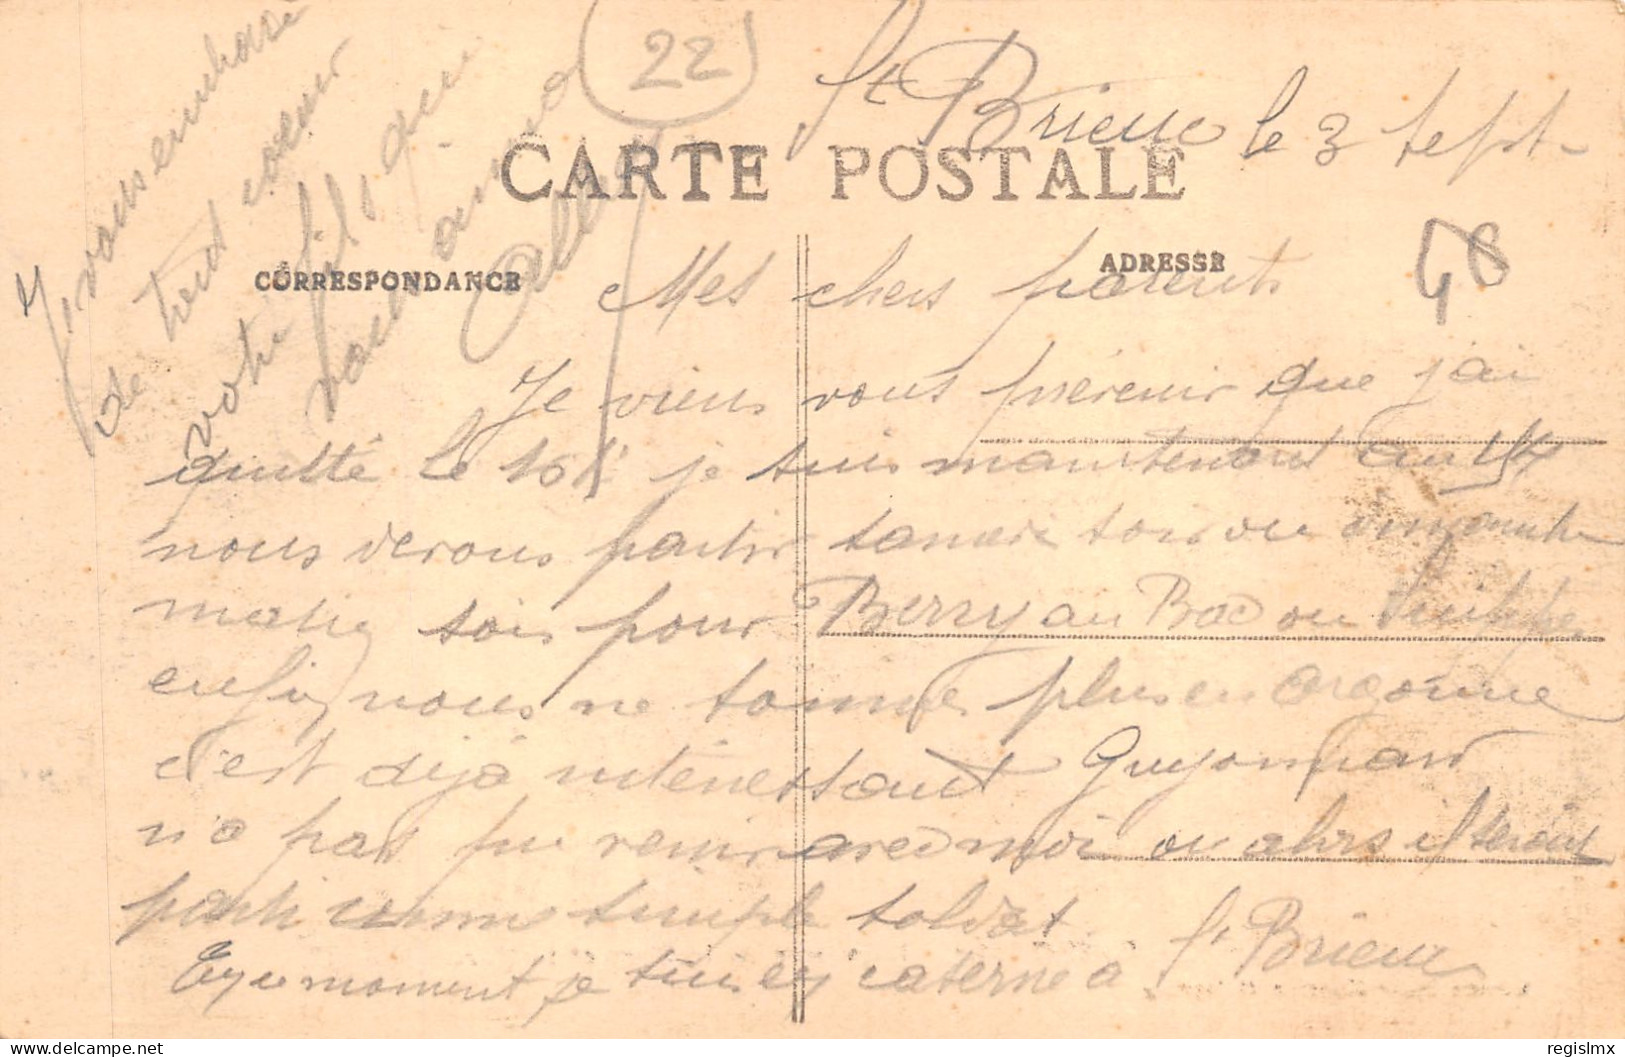 22
St Brieuc le 3 Sept-
CARTE POSTALE
CORRESPONDANCE
ADRESSE
48
Mes chers parents
Je viens vous prévenir que j'ai
quitté le je suis maintenant au
nous devons partir samedi soir ou dimanche
matin soit pour Berry au Bac ou Suippe
enfin nous ne sommes plus en Argonne
c'est déjà intéressant Guyomard
n'a pas pu venir avec moi ou alors il serait
parti comme simple soldat
En ce moment je suis en caserne à St Brieuc
J, vous embrasse
de tout coeur
votre fils qui
vous aime
regislmx